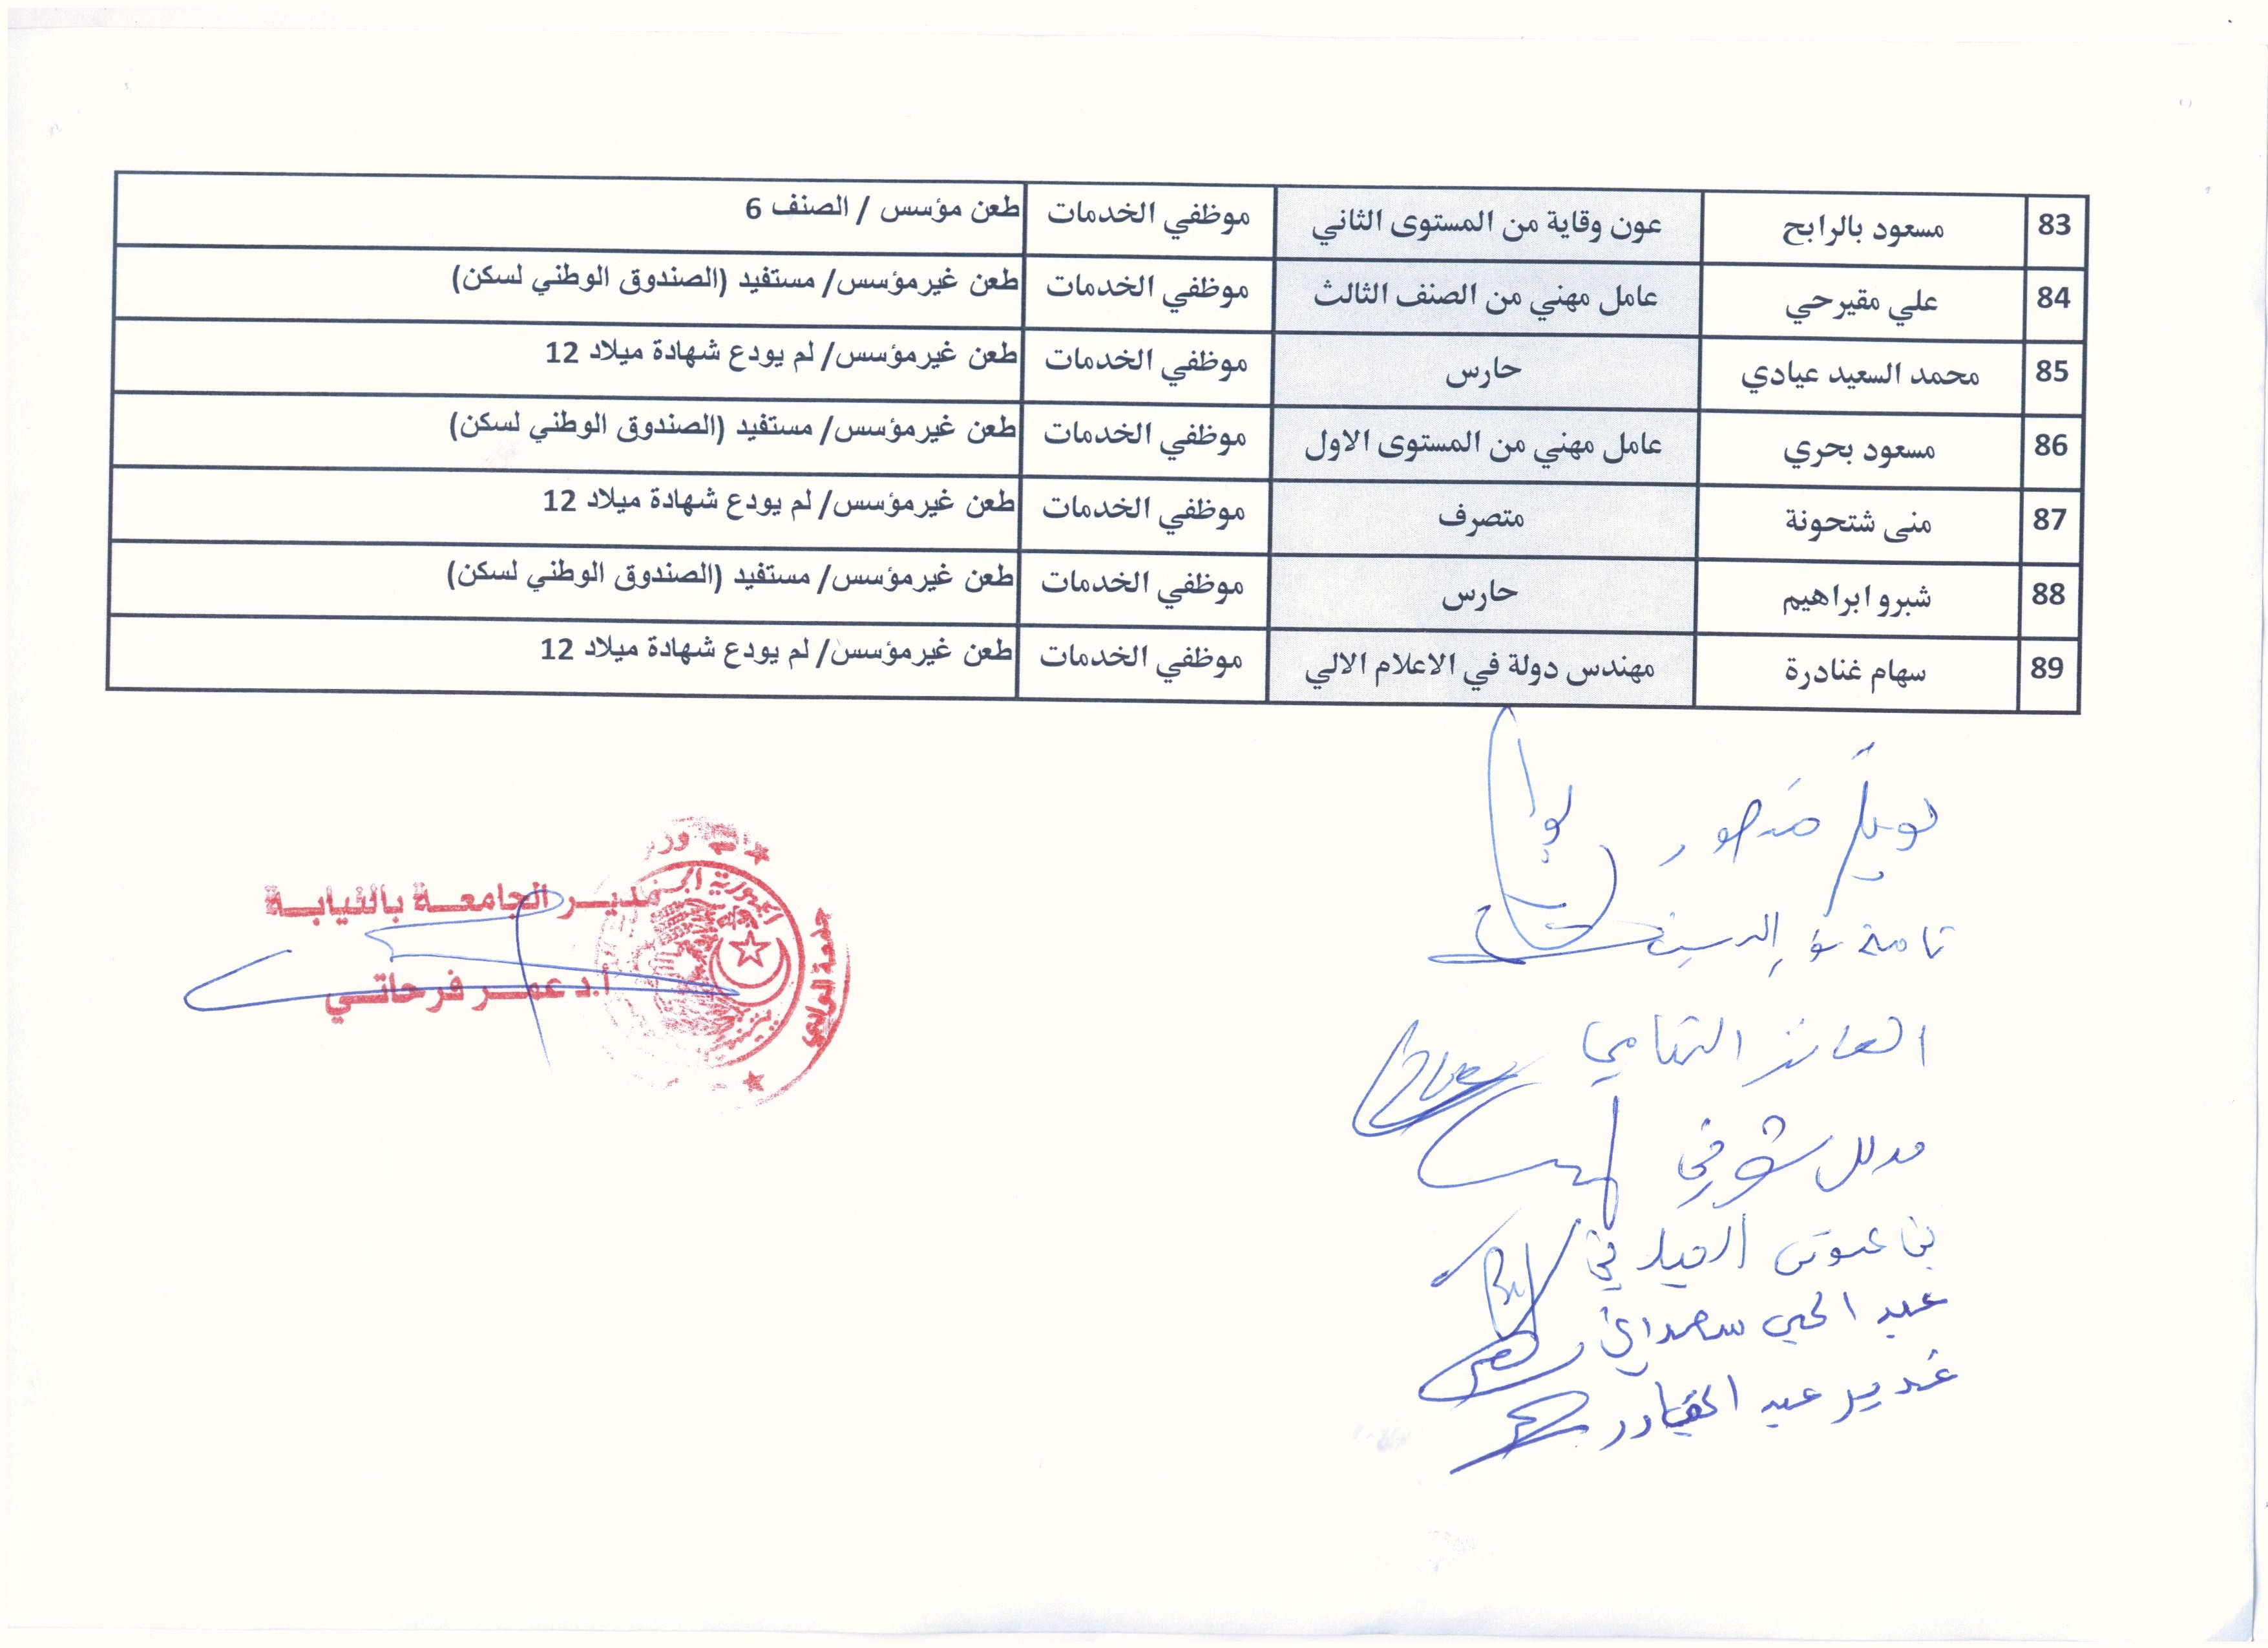 83 مسعود بالرابح عون وقاية من المستوى الثاني موظفي الخدمات طعن مؤسس / الصنف 6
84 علي مقيرحي عامل مهني من الصنف الثالث موظفي الخدمات طعن غيرمؤسس/ مستفيد (الصندوق الوطني لسكن)
85 محمد السعيد عيادي حارس موظفي الخدمات طعن غيرمؤسس/ لم يودع شهادة ميلاد 12
86 مسعود بحري عامل مهني من المستوى الاول موظفي الخدمات طعن غيرمؤسس/ مستفيد (الصندوق الوطني لسكن)
87 منى شتحونة متصرف موظفي الخدمات طعن غيرمؤسس/ لم يودع شهادة ميلاد 12
88 شبرو ابراهيم حارس موظفي الخدمات طعن غيرمؤسس/ مستفيد (الصندوق الوطني لسكن)
89 سهام غنادرة مهندس دولة في الاعلام الالي موظفي الخدمات طعن غيرمؤسس/ لم يودع شهادة ميلاد 12
منصور
تامة نور الدين
العائز التهامي
مدلل شوقي
بن عبد الحي سعداني
غدير عبد القادر
مدير الجامعة بالنيابة
أ.د عمر فرحاتي
جامعة الوادي